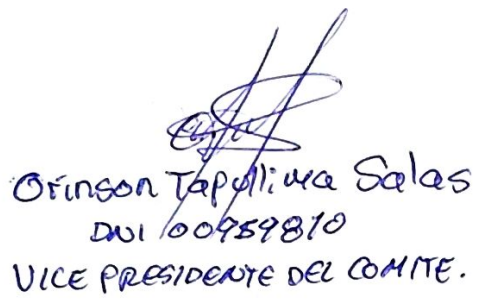 Orinson Tapullima Salas
DNI 00959810
VICE PRESIDENTE DEL COMITE.